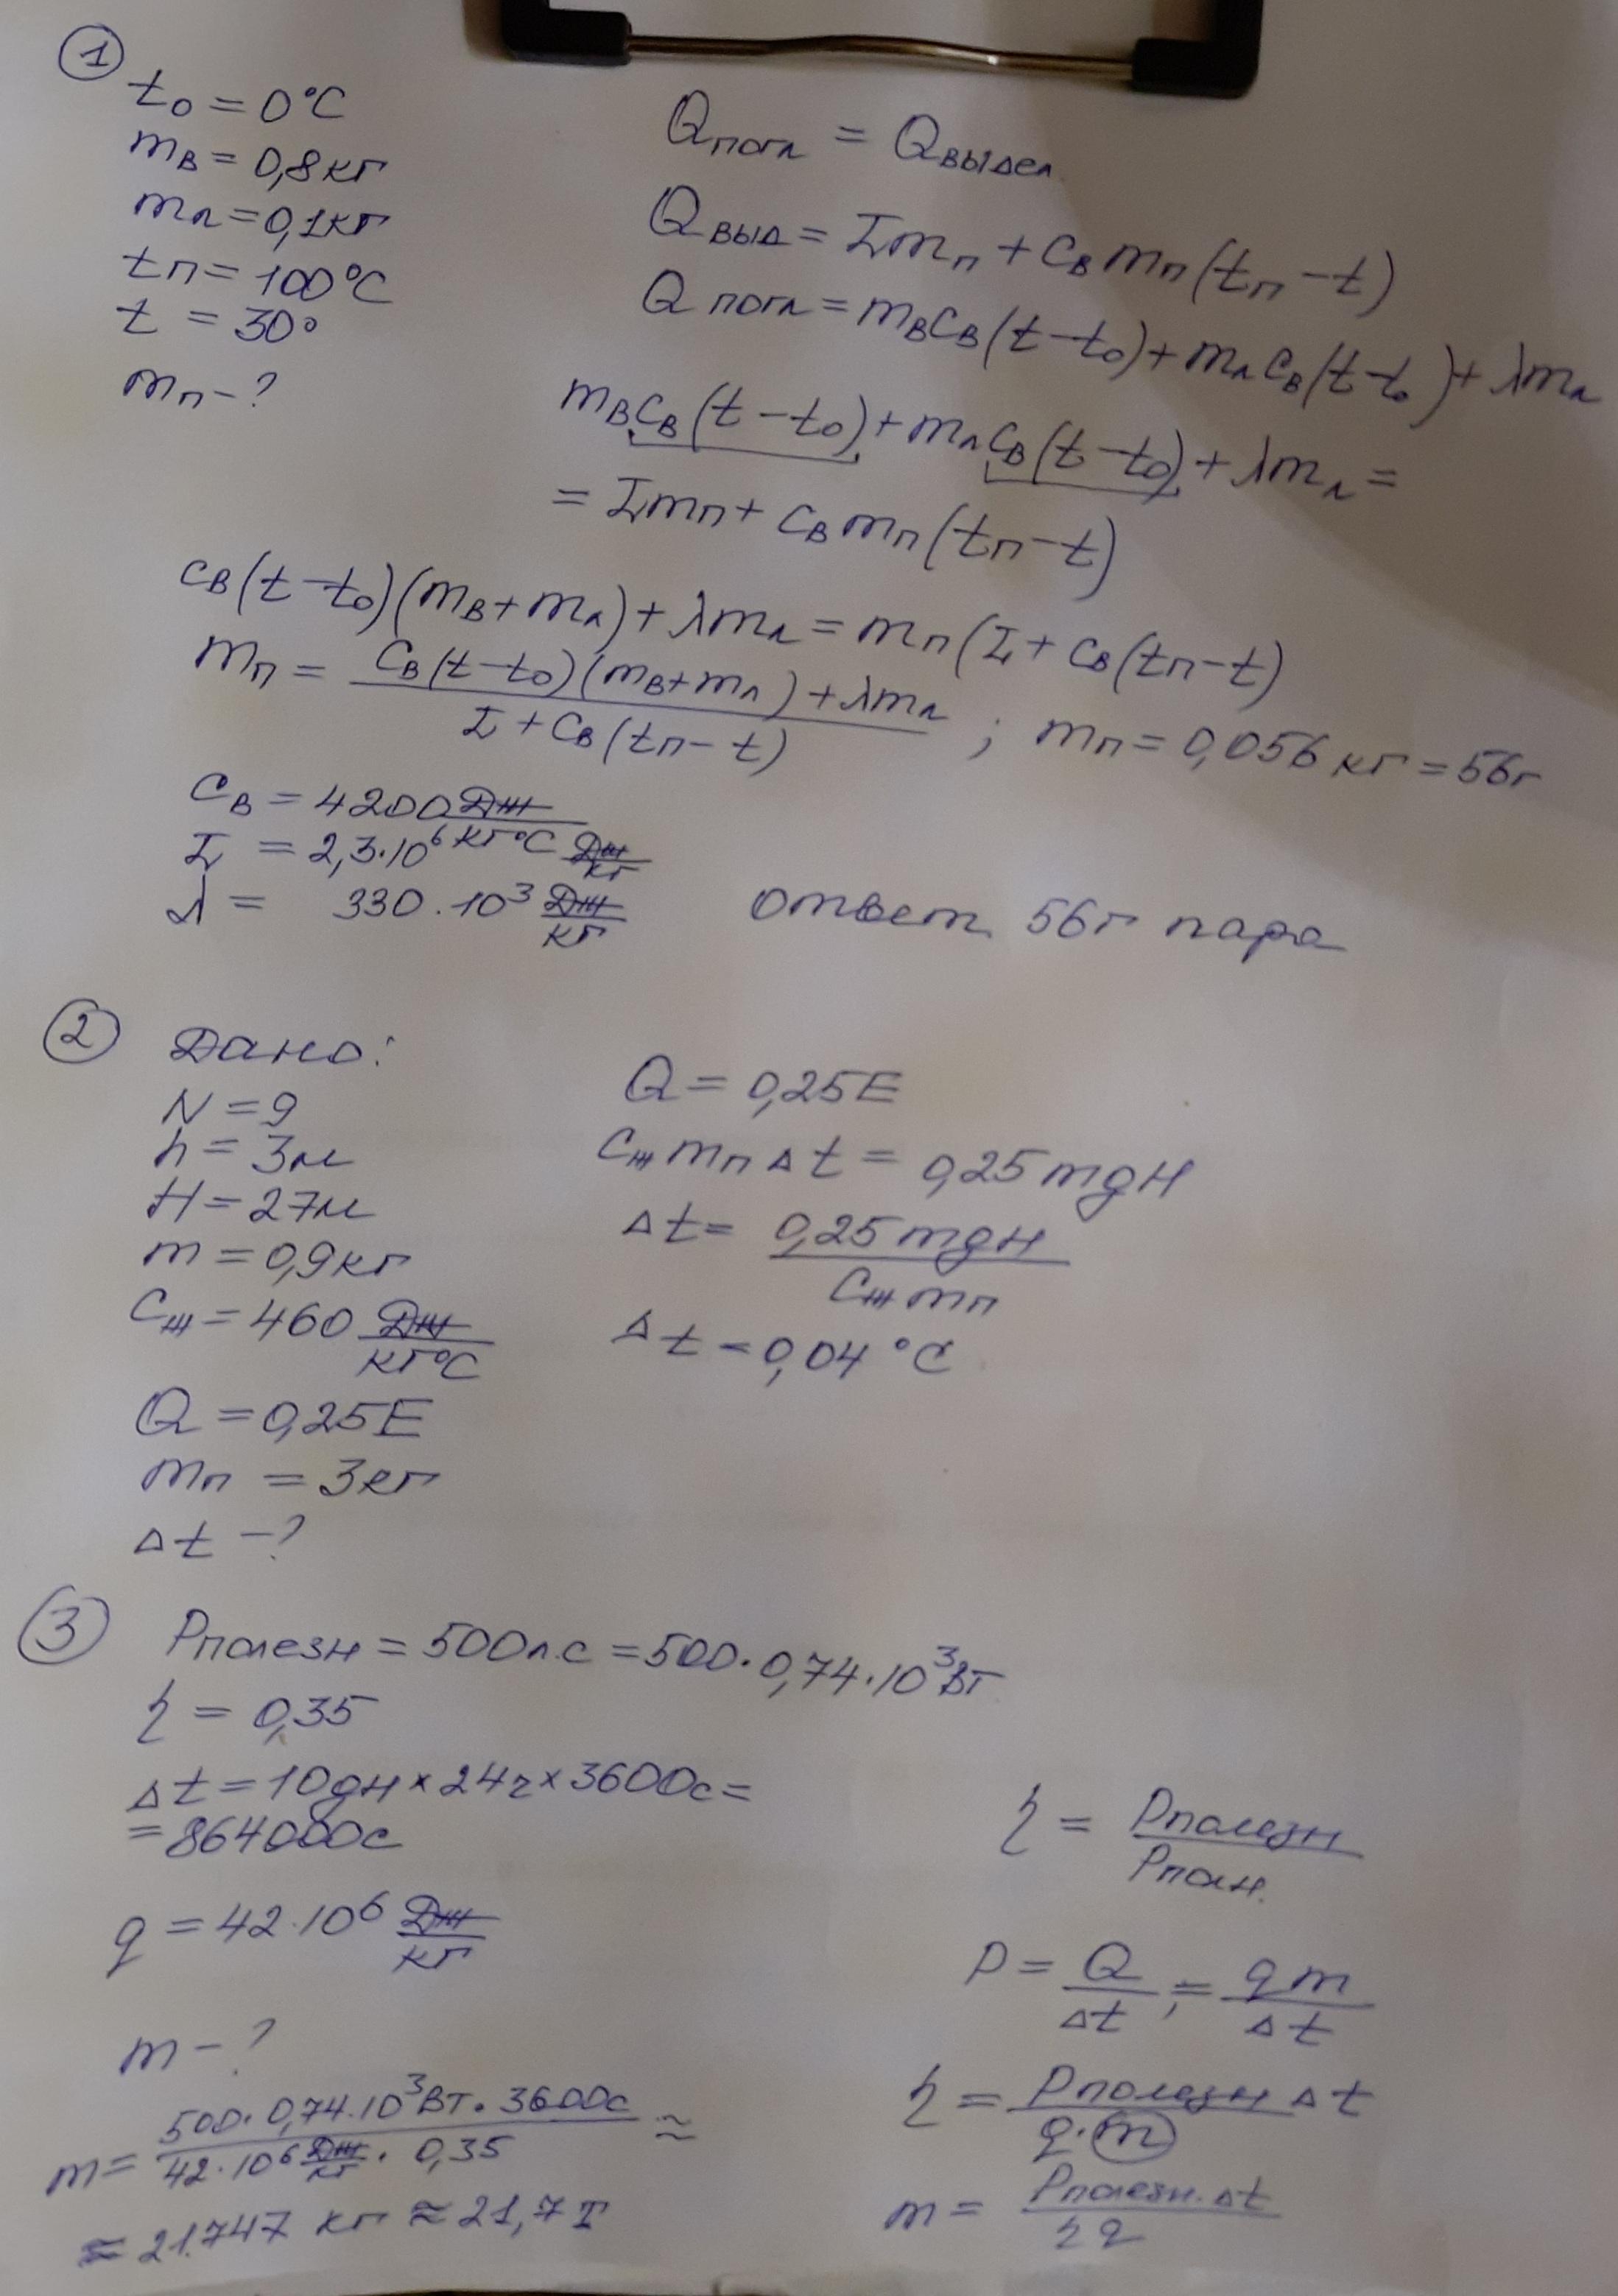 1
t₀ = 0°C
mв = 0,8кг
mл = 0,1кг
tп = 100°C
t = 30°
mп - ?
Qпогл = Qвыдел
Qвыд = Lmп + cвmп(tп - t)
Qпогл = mвcв(t - t₀) + mлcв(t - t₀) + λmл
mвcв(t - t₀) + mлcв(t - t₀) + λmл =
= Lmп + cвmп(tп - t)
cв(t - t₀)(mв + mл) + λmл = mп(L + cв(tп - t)
mп = cв(t - t₀)(mв + mл) + λmл / L + cв(tп - t) ; mп = 0,056 кг = 56г
cв = 4200 Дж/кг°C
L = 2,3·10⁶ Дж/кг
λ = 330·10³ Дж/кг
Ответ 56г пара
2 Дано:
N = 9
h = 3м
H = 27м
m = 0,9кг
cж = 460 Дж/кг°C
Q = 0,25E
mп = 3кг
Δt - ?
Q = 0,25E
cж mп Δt = 0,25 mgH
Δt = 0,25 mgH / cж mп
Δt = 0,04 °C
3 Pполезн = 500л.с = 500·0,74·10³Вт
η = 0,35
Δt = 10дн × 24ч × 3600с =
= 864000с
q = 42·10⁶ Дж/кг
m - ?
m = 500·0,74·10³Вт·3600с / 42·10⁶ Дж/кг · 0,35 ≈
≈ 21747 кг ≈ 21,7 т
η = Pполезн / Pполн.
P = Q/Δt ; = qm/Δt
η = Pполезн Δt / q·m
m = Pполезн·Δt / ηq